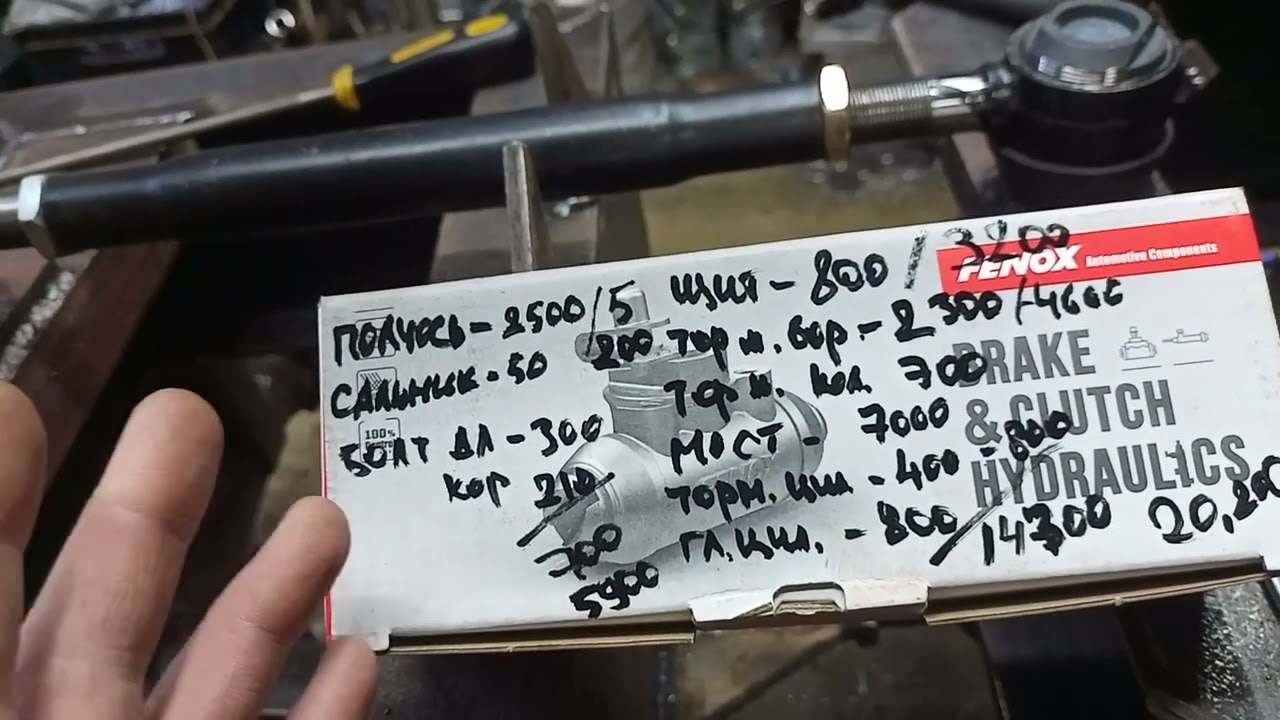 ПОЛУОСЬ - 2500/5
САЛЬНИК - 50 200
БОЛТ ДЛ - 300
КОР 210
700
5900
ЩИТ - 800 / 3200
ТОРМ. БАР. - 2300/4600
ТОРМ. КОЛ. 700
МОСТ - 7000
ТОРМ. ЦИЛ - 400 - 800
ГЛ. ЦИЛ. - 800 / 14300 20,200
FENOX Automotive Components
BRAKE
& CLUTCH
HYDRAULICS
100%